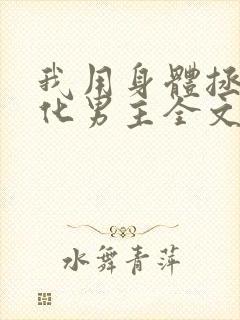 我用身體拯
化男主全文
水舞青萍